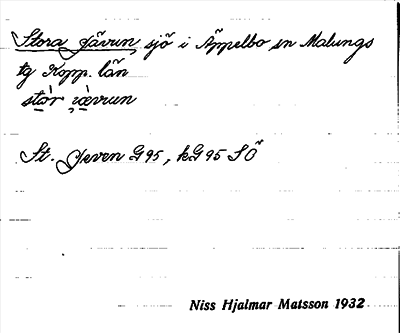 Stora Jävun, sjö i Äppelbo sn Malungs
tg Kopp. län
stòr jævrun
St. Jeven G95, kG 95 SÖ
Niss Hjalmar Matsson 1932